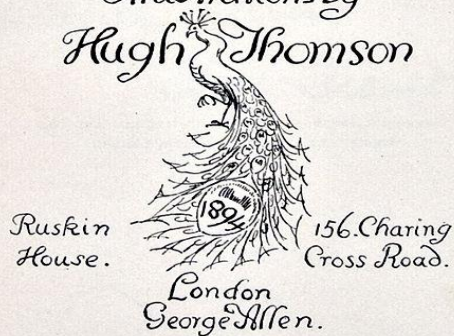 Illustrations by
Hugh Thomson
1894
Ruskin
House.
156. Charing
Cross Road.
London
George Allen.